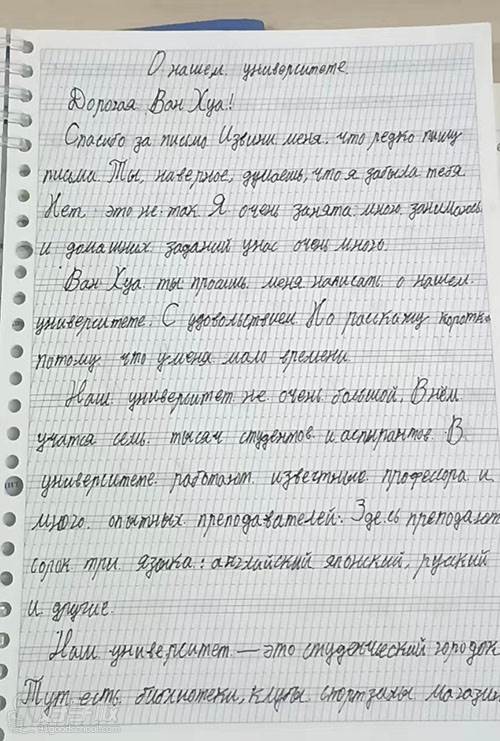 О нашем университете.
Дорогая Ван Хуа!
Спасибо за письмо Извини меня. что редко пишу
письма. Ты, наверное, думаешь, что я забыла тебя
Нет это не так Я очень занята много занимаюсь
и домашних заданий у нас очень много.
Ван Хуа ты просишь меня написать о нашем
университете. С удовольствием Но расскажу коротко
потому что у меня мало времени
Наш университет не очень большой. В нём
учатся семь тысяч студентов и аспирантов В
университете работают известные професора и
много опытных преподавателей. Здесь преподают
сорок три языка: английский японский, руский
и другие.
Наш университет — это студенческий городок
Тут есть библиотеки, клубы спортзалы магазин